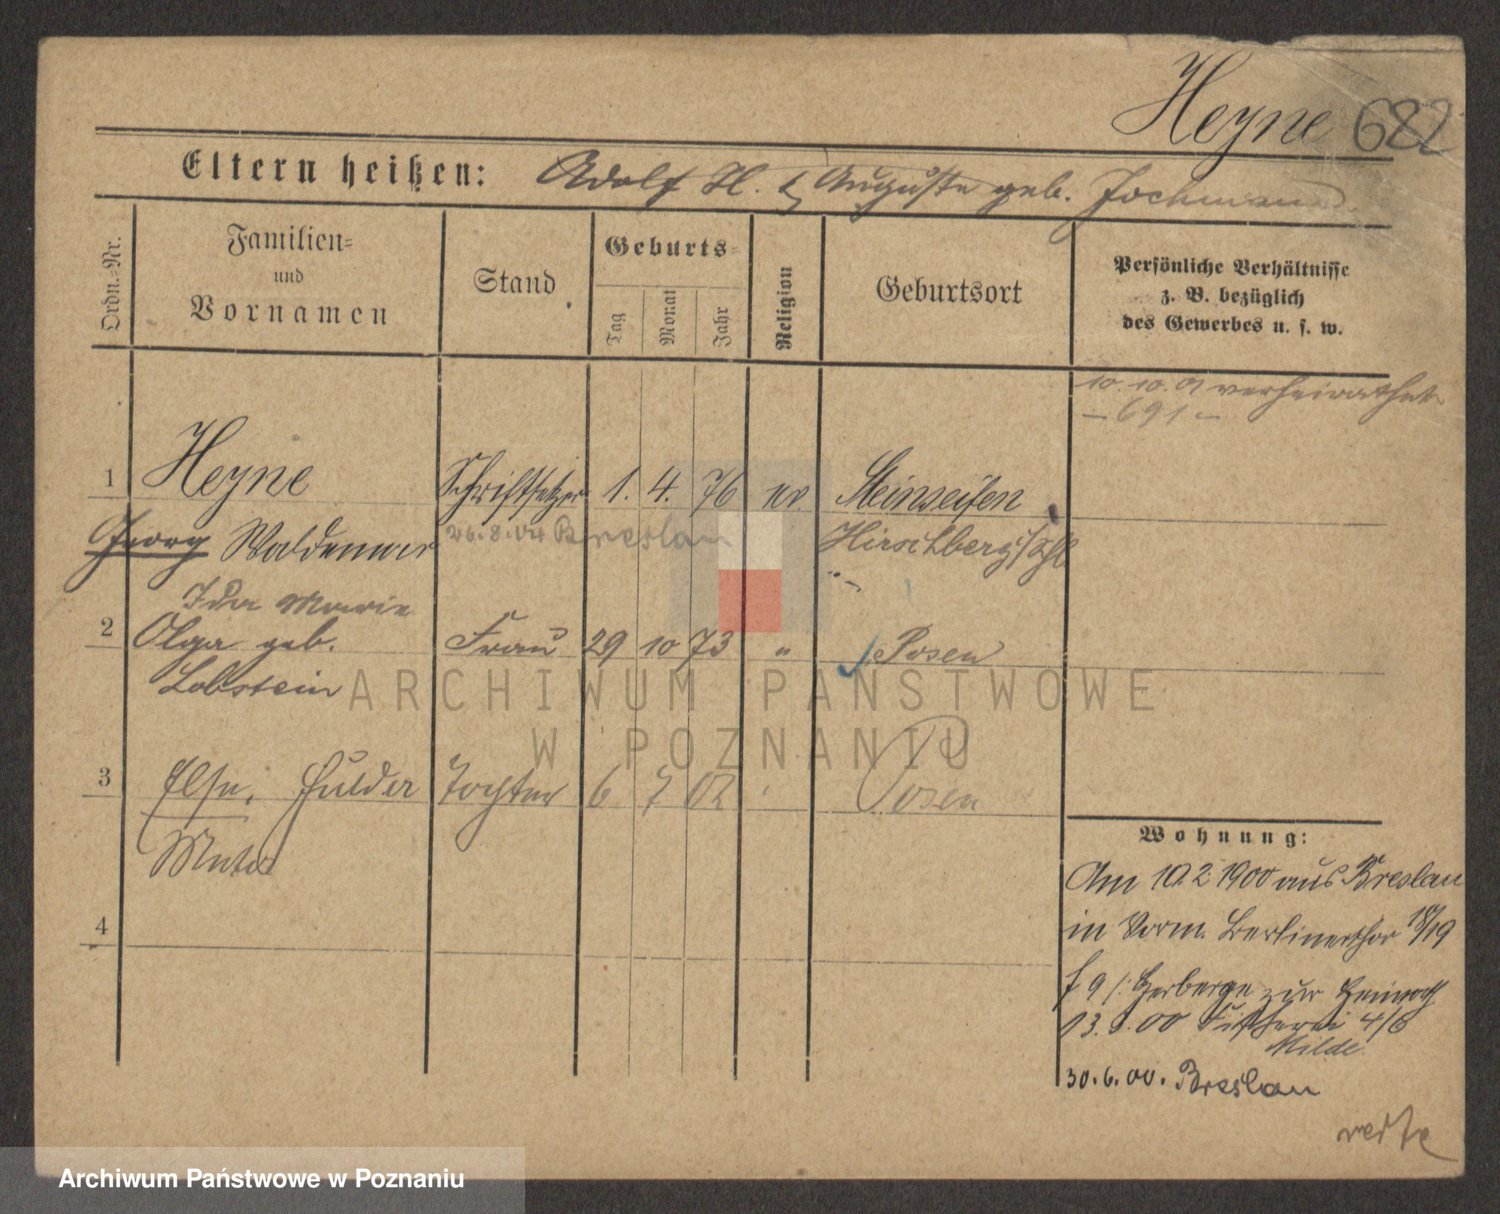 Heyne 682
Eltern heißen: Adolf H. & Auguste geb. Jochmann
Ordn.-Nr.
Familien-
und
Vornamen
Stand
Geburts-
Tag
Monat
Jahr
Religion
Geburtsort
Persönliche Verhältnisse
z. B. bezüglich
des Gewerbes u. s. w.
10.10.01 verheirathet
- 691 -
1 Heyne Schriftsetzer 1. 4. 76 ev. Steinseifen
Georg Waldemar 26.8.04 Breslau Hirschberg i/Schl
Ida Marie
2 Olga geb. Frau 29 10 73 " Posen
Lobstein
3 Else, Hulda Tochter 6 7 02 Posen
4
Wohnung:
Am 10.2.1900 aus Breslau
in Vorm. Berlinerthor 18/19
Herberge zur Heimath
00 Fischerei 4/6
Milde
30.6.00. Breslau
ARCHIWUM PAŃSTWOWE
W POZNANIU
Archiwum Państwowe w Poznaniu